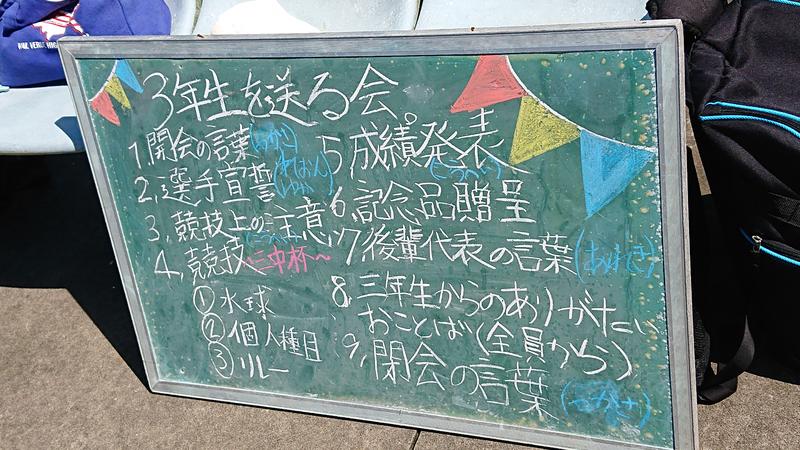 3年生を送る会
1.開会の言葉
2.選手宣誓
3.競技上の注意
4.競技 〜三中杯〜
①水球
②個人種目
③リレー
5成績発表
6.記念品贈呈
7.後輩代表の言葉
8.三年生からのありがたい
おことば(全員から)
9.閉会の言葉